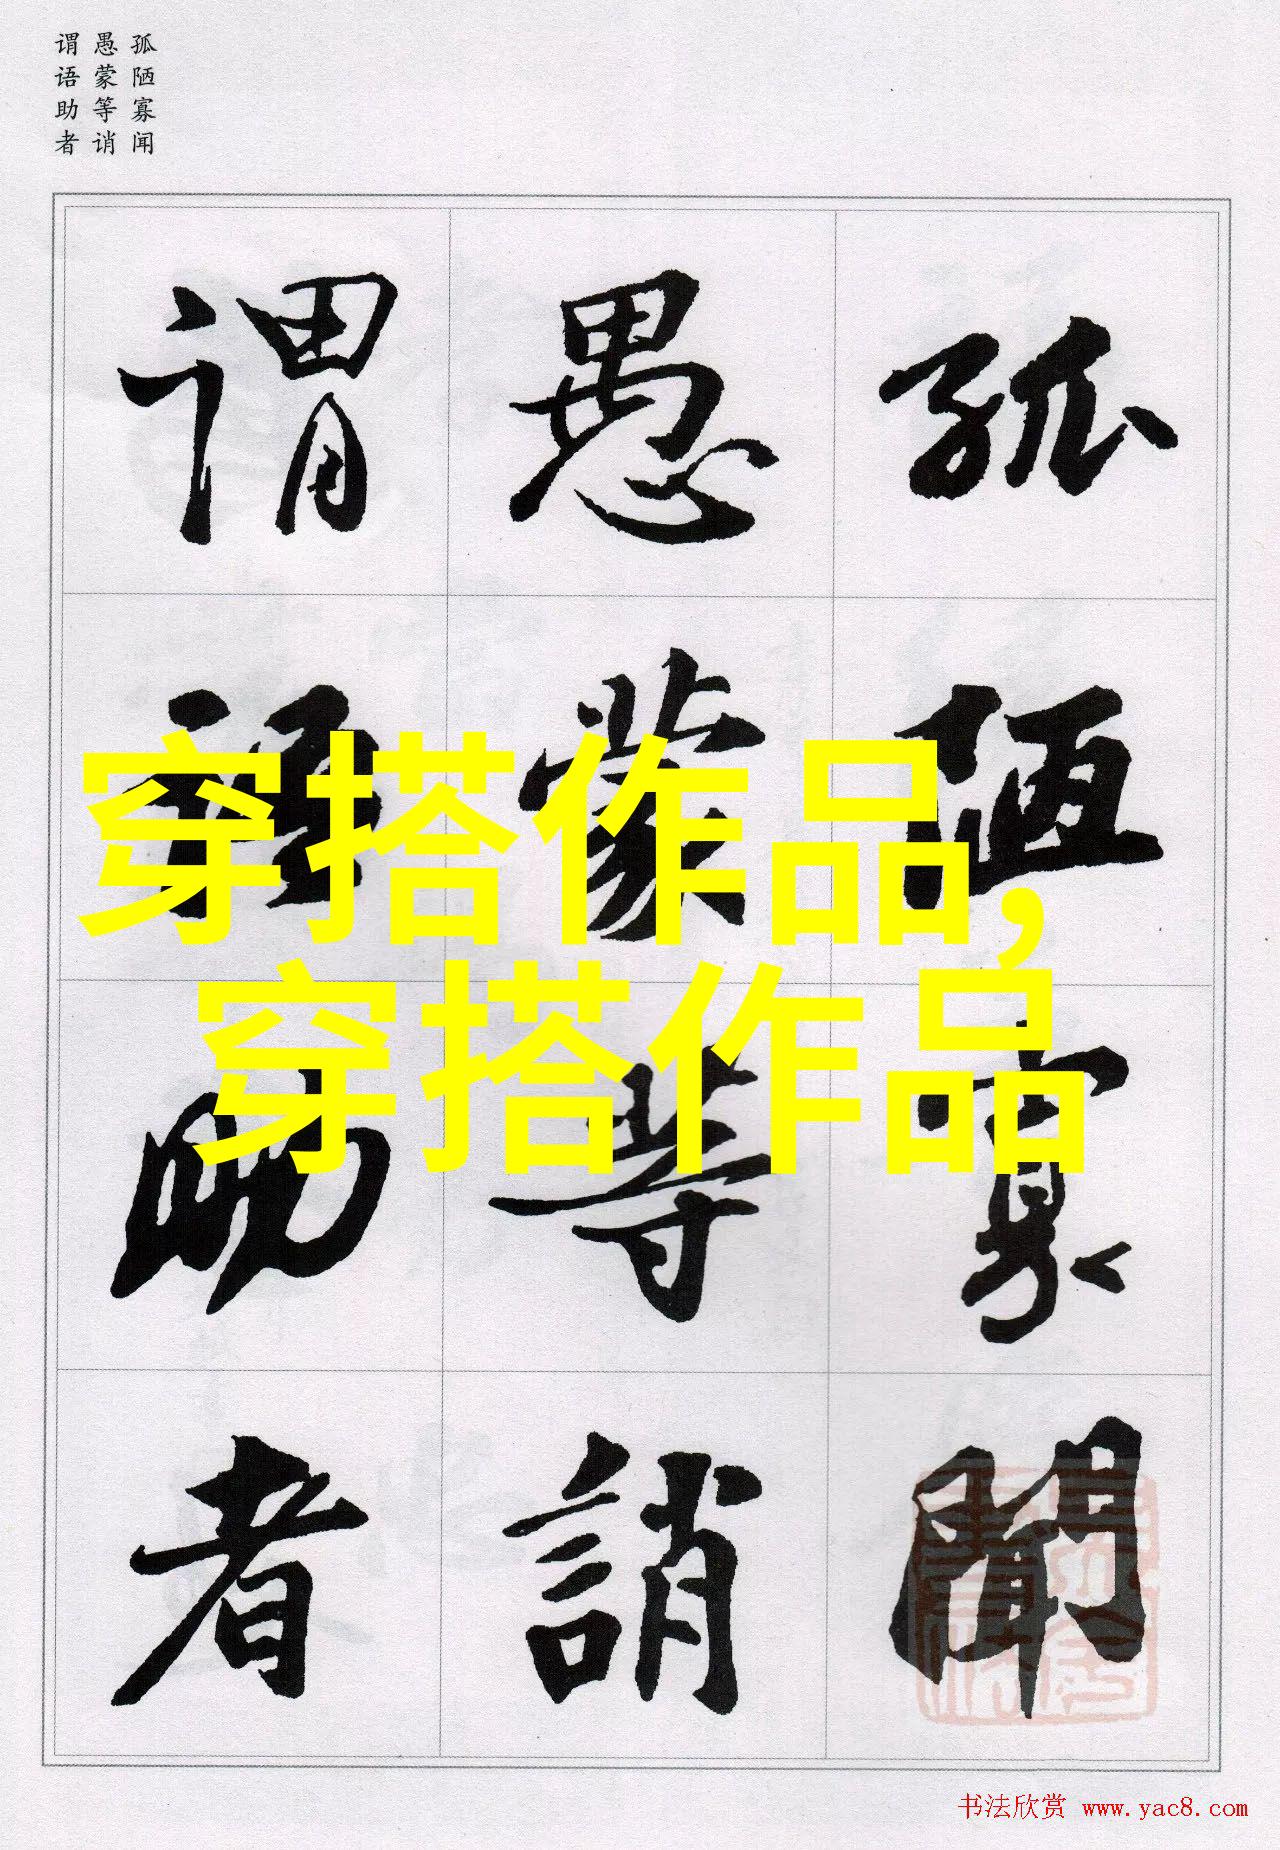 孤陋寡闻
愚蒙等诮
谓语助者
孤陋寡聞
愚蒙等誚
謂語助者
穿搭作品,
穿搭作品
书法欣赏 www.yac8.com